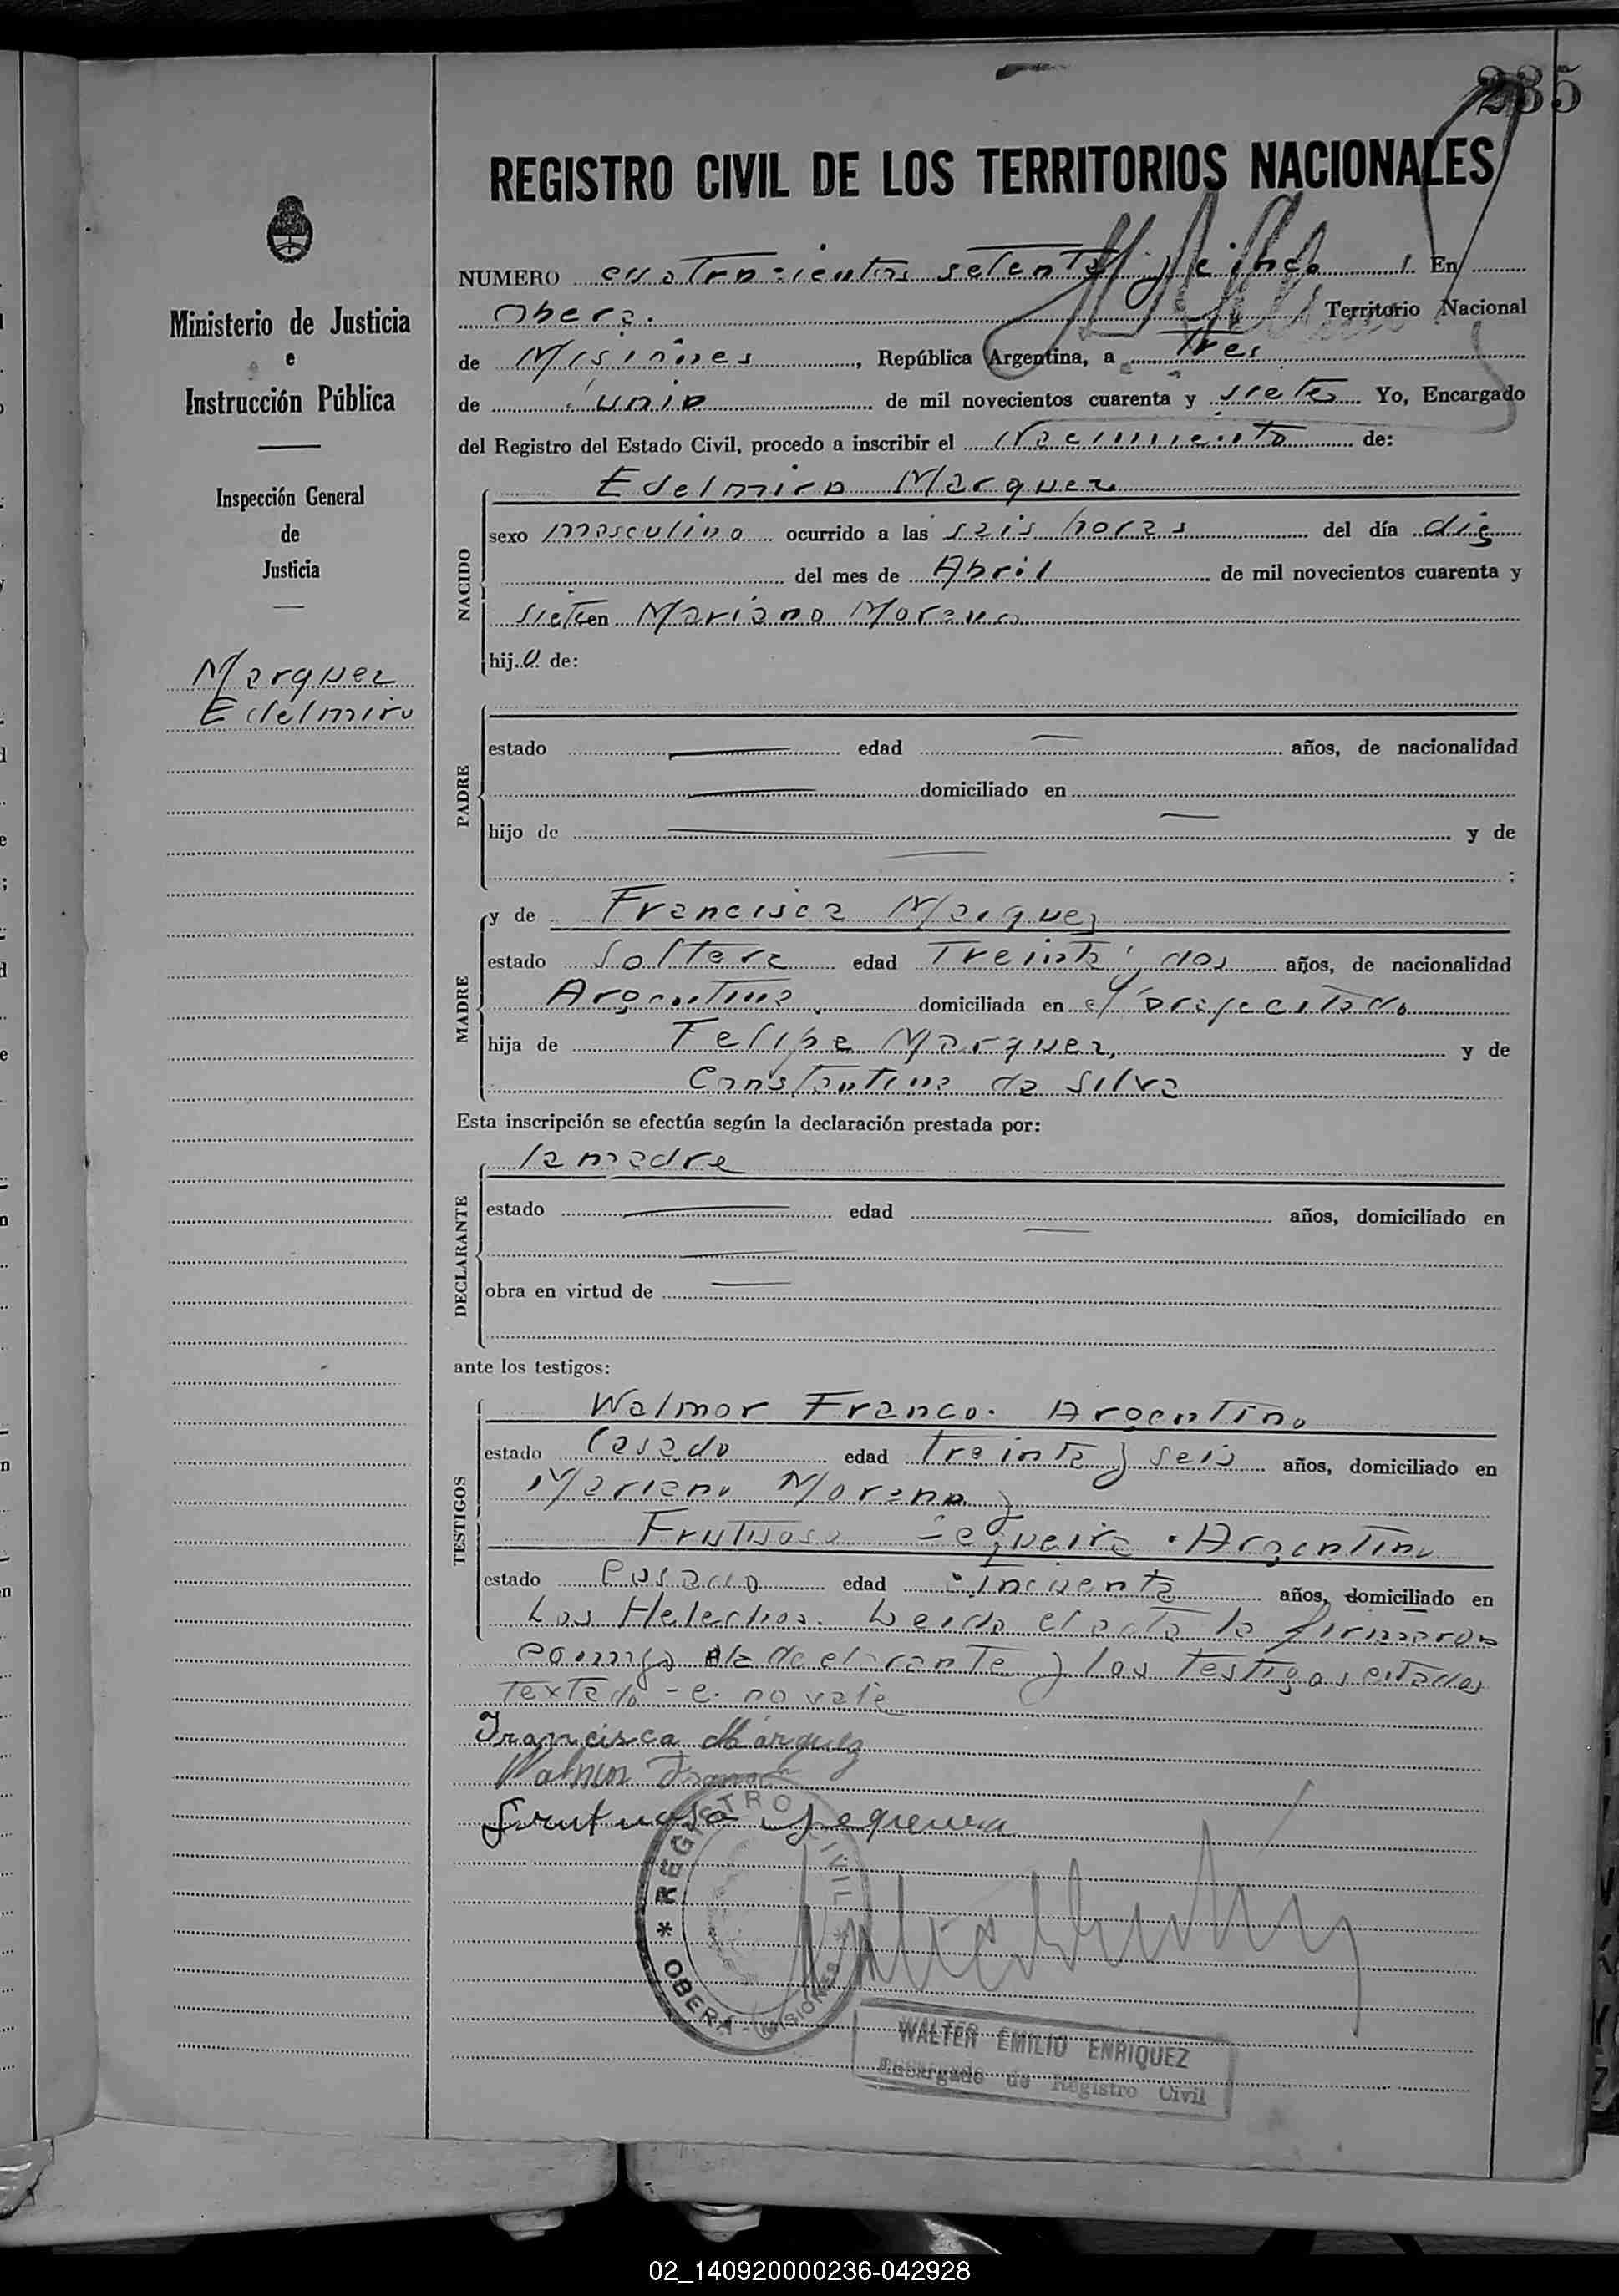 235
REGISTRO CIVIL DE LOS TERRITORIOS NACIONALES
NUMERO cuatrocientos setenta y cinco En
Obera. Territorio Nacional
de Misiones, República Argentina, a tres
de junio de mil novecientos cuarenta y siete Yo, Encargado
del Registro del Estado Civil, procedo a inscribir el Nacimiento de:
Ministerio de Justicia
e
Instrucción Pública
Inspección General
de
Justicia
Marquez
Edelmiro
NACIDO
Edelmiro Marquez
sexo masculino ocurrido a las seis horas del día diez
del mes de Abril de mil novecientos cuarenta y
siete en Mariano Moreno
hijo de:
PADRE
estado edad años, de nacionalidad
domiciliado en
hijo de y de
:
MADRE
y de Francisca Marquez
estado Soltera edad Treinta y dos años, de nacionalidad
Argentina domiciliada en el precitado
hija de Felipe Marquez, y de
Constantina da Silva
Esta inscripción se efectúa según la declaración prestada por:
DECLARANTE
la madre
estado edad años, domiciliado en
obra en virtud de
ante los testigos:
TESTIGOS
Walmor Franco. Argentino
estado Casado edad treinta y seis años, domiciliado en
Mariano Moreno y
Frutuoso Sequeira. Argentino
estado Casado edad cincuenta años, domiciliado en
Los Helechos. Leida el acta la firmaron
conmigo la declarante y los testigos citados
Textado - e. no vale
Francisca Márquez
Valmor Franco
Frutuoso Sequeira
* REGISTRO CIVIL *
OBERA - MISIONES
WALTER EMILIO ENRIQUEZ
Encargado de Registro Civil
02_140920000236-042928